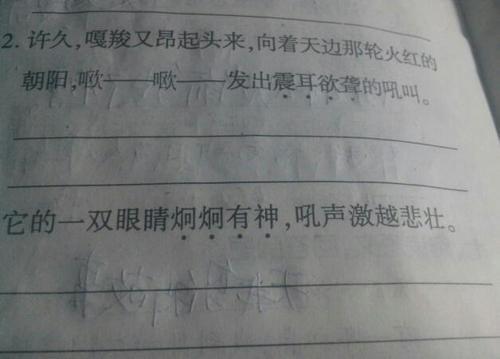 2. 许久,嘎羧又昂起头来,向着天边那轮火红的
朝阳,嗷——嗷——发出震耳欲聋的吼叫。
它的一双眼睛炯炯有神,吼声激越悲壮。